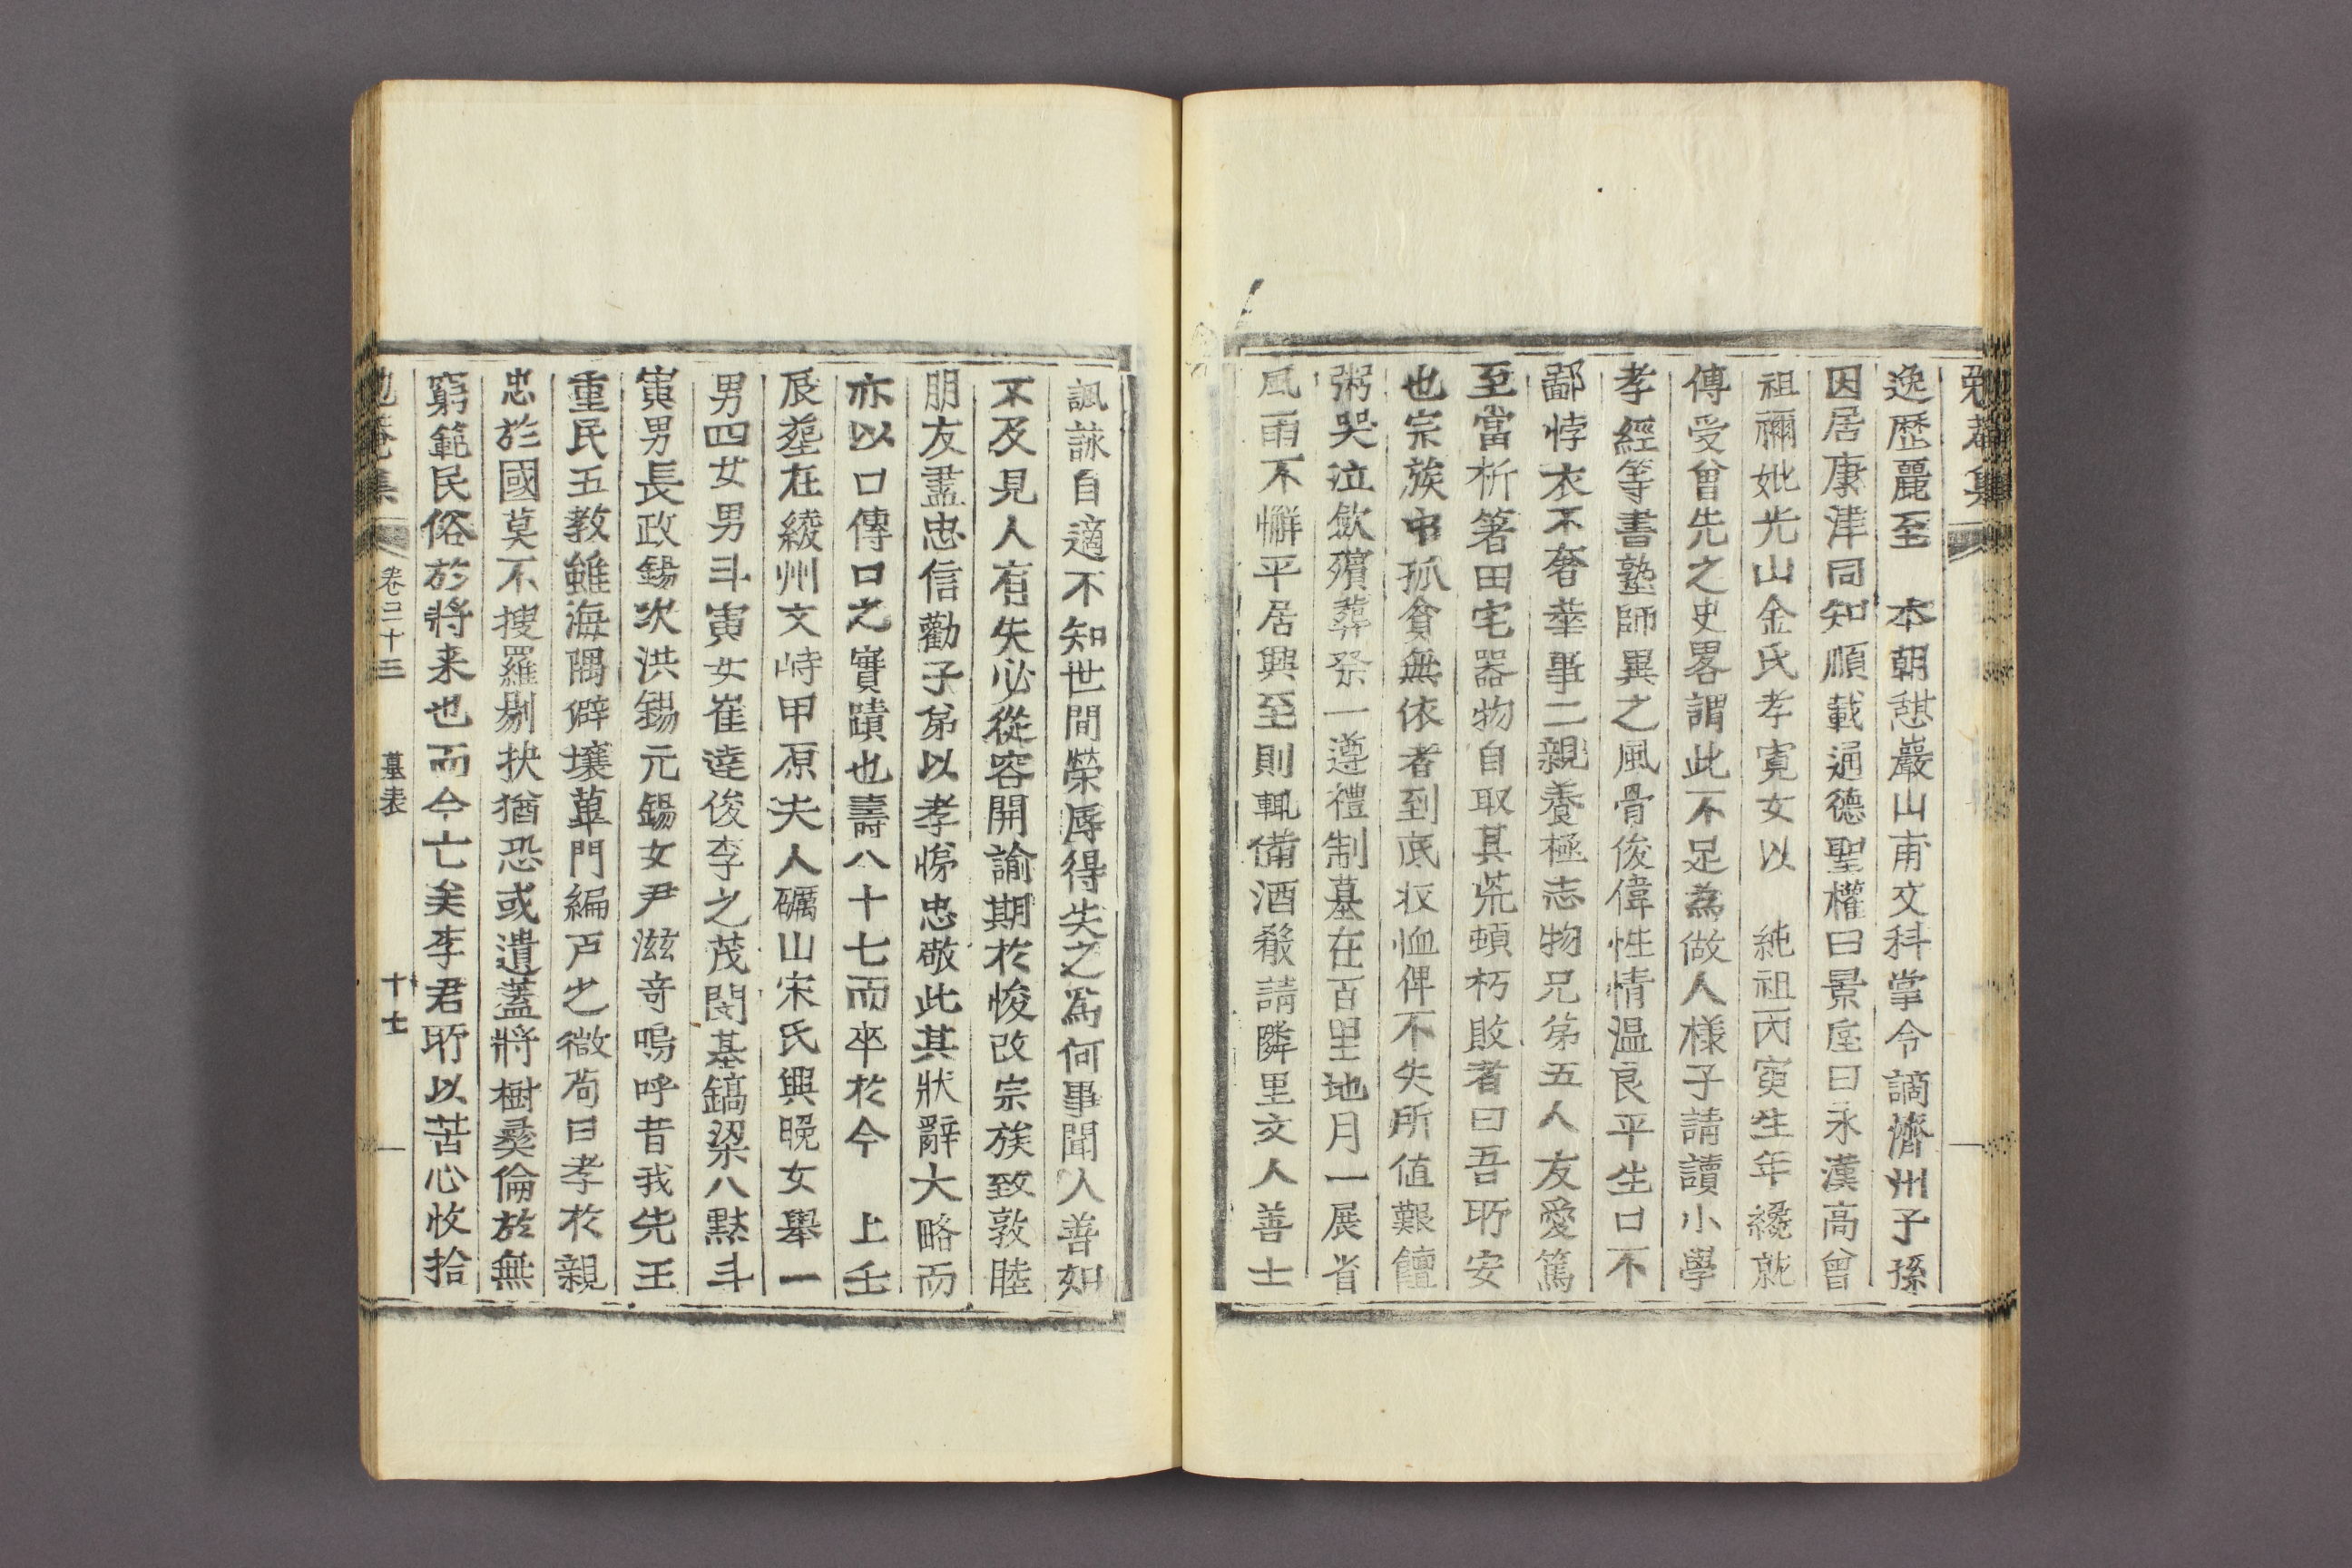 逸歷麗至　本朝憇巖山甫文科掌令謫濟州子孫
因居康津同知順載通德聖權曰景㕓曰永漢高曾
祖禰妣光山金氏孝寛女以　純祖丙寅生年纔就
傅受曾先之史畧謂此不足為做人樣子請讀小學
孝經等書塾師異之風骨俊偉性情温良平生口不
鄙悖衣不奢華事二親養極志物兄弟五人友愛篤
至當析箸田宅器物自取其荒頓朽敗者曰吾所安
也宗族中孤貧無依者到底收恤俾不失所值艱饘
粥哭泣斂殯葬祭一遵禮制墓在百里地月一展省
風雨不懈平居興至則輒備酒殽請隣里文人善士
諷詠自適不知世間榮辱得失之爲何事聞人善如
不及見人有失必從容開諭期於悛改宗族致敦睦
朋友盡忠信勸子弟以孝悌忠敬此其狀辭大略而
亦以口傳口之實蹟也壽八十七而卒於今　上壬
辰塟在綾州文峙甲原夫人礪山宋氏興晩女舉一
男四女男斗寅女崔逵俊李之茂閔基鎬梁八黙斗
寅男長政錫次洪錫元錫女尹滋竒嗚呼昔我先王
重民五教雖海隅僻壤蓽門編戸之微苟曰孝於親
忠於國莫不搜羅剔抉猶恐或遺蓋將樹彛倫於無
窮範民俗於將来也而今亡矣李君所以苦心收拾
卷二十三　墓表　十七